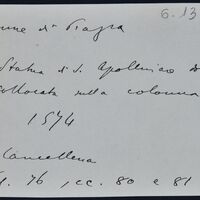 6.13
Statua di S. Apollinare
collocata sulla colonna
1574
Cancelleria
76, cc. 80 e 81